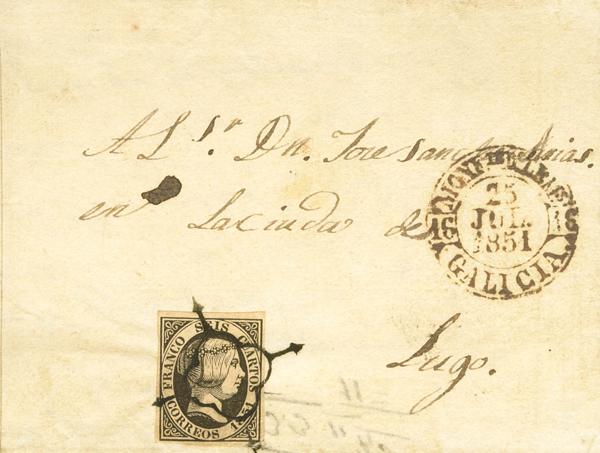 Al Sr. Dn. Jose Sanchez Arias.
en La ciuda de
Lugo.
25
JUL.
1851
GALICIA
FRANCO SEIS CUARTOS
CORREOS 1851